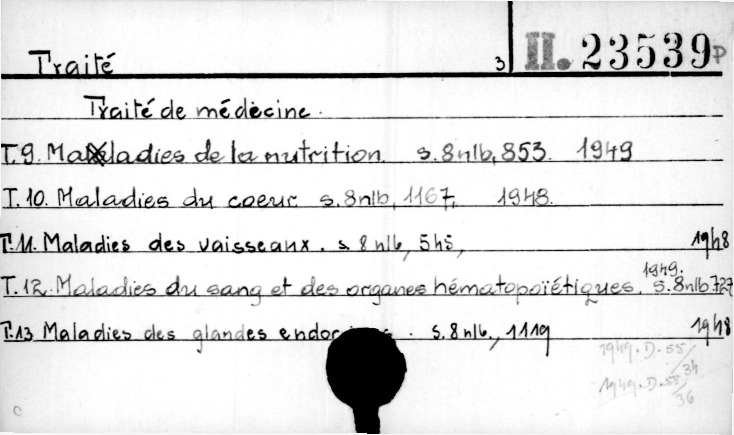 Traité 3 II. 23539 D
Traité de médecine.
T.9. Maladies de la nutrition. s. 8nlb, 853. 1949
T.10. Maladies du coeur s. 8nlb, 1167, 1948.
T.11. Maladies des vaisseaux. s. 8 nlb, 545, 1948
T.12. Maladies du sang et des organes hématopoïétiques. 1949. s. 8nlb 727
T.13 Maladies des glandes . s. 8 nlb., 1119 1948
1949. D. 55/34
1949. D. 55/36
c